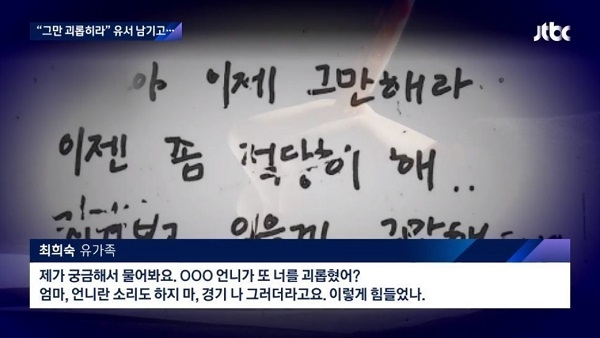 “그만 괴롭히라” 유서 남기고…
jtbc
야 이제 그만해라
이젠 좀 적당히 해..
최희숙 유가족
제가 궁금해서 물어봐요. OOO 언니가 또 너를 괴롭혔어?
엄마, 언니란 소리도 하지 마, 경기 나 그러더라고요. 이렇게 힘들었나.